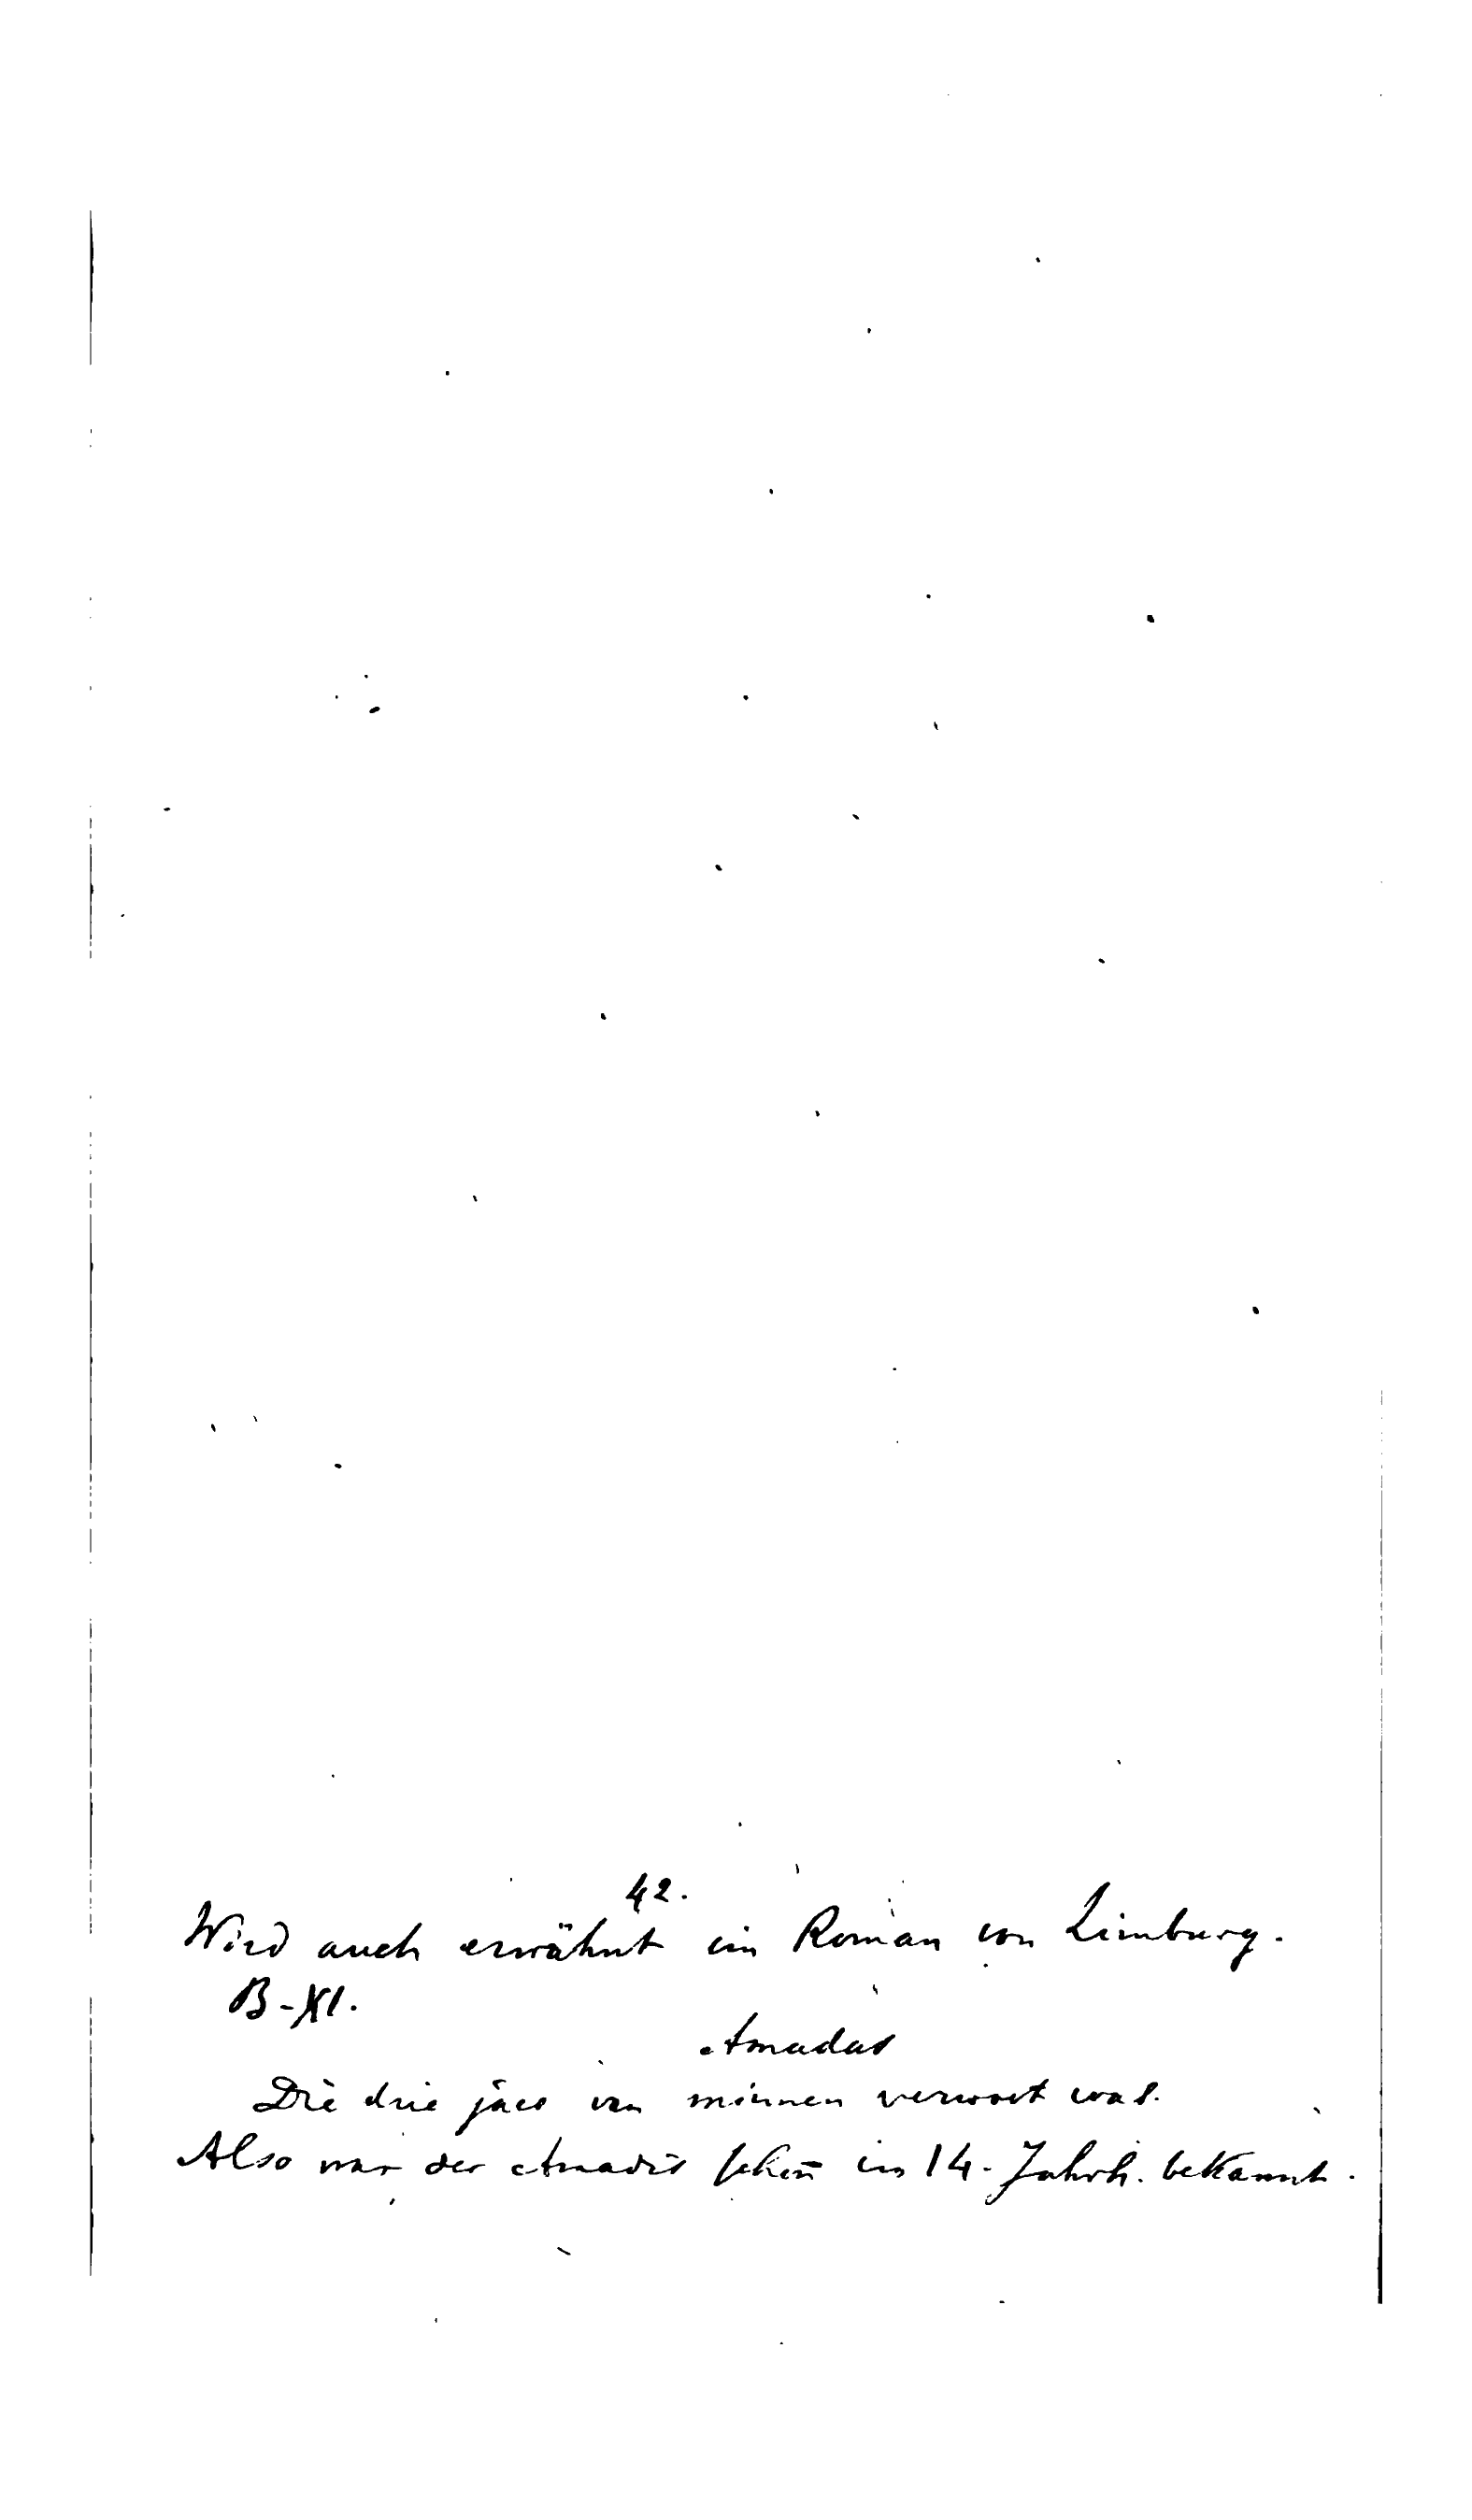 42.
Wird auch erwähnt im Roman von Limburg.
B-XI.
Amadas
Die drie jaer van minnen verwoet was.
Also war der Amadis schon im 14. Jahrh. bekannt.